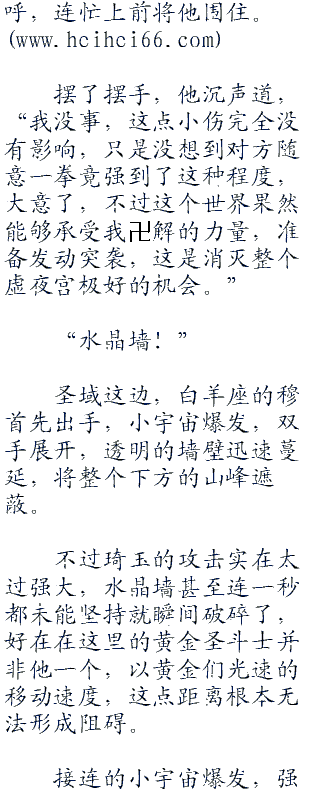 呼，连忙上前将他围住。
(www.hcihci66.com)
摆了摆手，他沉声道，
“我没事，这点小伤完全没
有影响，只是没想到对方随
意一拳竟强到了这种程度，
大意了，不过这个世界果然
能够承受我卍解的力量，准
备发动突袭，这是消灭整个
虚夜宫极好的机会。”
“水晶墙！”
圣域这边，白羊座的穆
首先出手，小宇宙爆发，双
手展开，透明的墙壁迅速蔓
延，将整个下方的山峰遮
蔽。
不过琦玉的攻击实在太
过强大，水晶墙甚至连一秒
都未能坚持就瞬间破碎了，
好在在这里的黄金圣斗士并
非他一个，以黄金们光速的
移动速度，这点距离根本无
法形成阻碍。
接连的小宇宙爆发，强